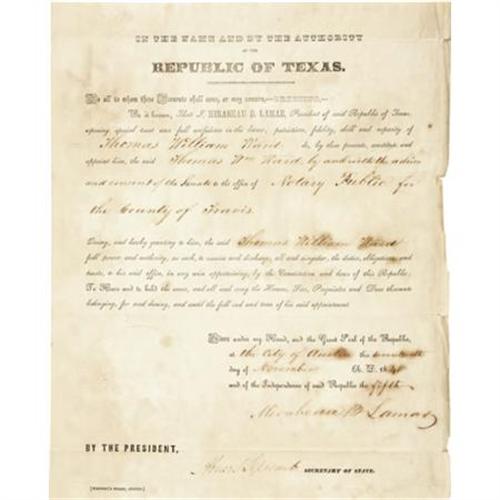 IN THE NAME AND BY THE AUTHORITY
OF THE
REPUBLIC OF TEXAS.
To all to whom these Presents shall come, or may concern,—GREETING,—
Be it known, That I, MIRABEAU B. LAMAR, President of said Republic of Texas,
reposing special trust and full confidence in the honor, patriotism, fidelity, skill and capacity of
Thomas William Ward do, by these presents, constitute and
appoint him, the said Thomas Wm Ward by and with the advice
and consent of the Senate to the office of Notary Public for
the County of Travis.
Giving, and hereby granting to him, the said Thomas William Ward
full power and authority, as such, to execute and discharge, all and singular, the duties, obligations, and
trusts, to his said office, in any wise appertaining, by the Constitution and laws of this Republic;
To Have and to hold the same, and all and every the Honors, Fees, Perquisites and Dues thereunto
belonging, for and during, and until the full end and term of his said appointment.
Given under my Hand, and the Great Seal of the Republic,
at the City of Austin the
day of November A. D. 1840
and of the Independence of said Republic the fifth
Mirabeau B Lamar
BY THE PRESIDENT,
SECRETARY OF STATE.